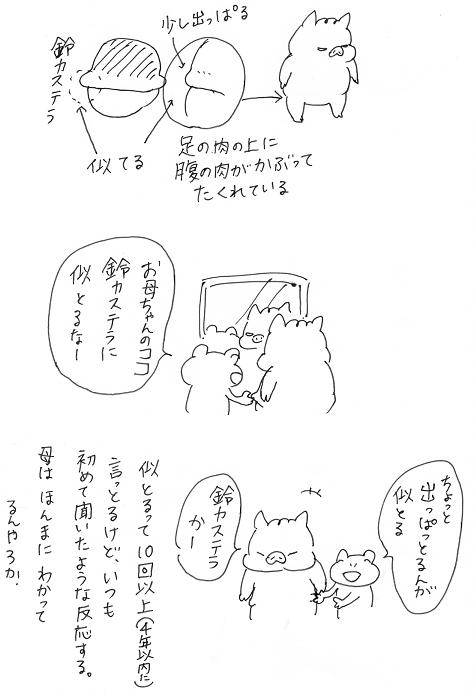 鈴カステラ
少し出っぱる
似てる
足の肉の上に
腹の肉がかぶって
たくれている
お母ちゃんのココ
鈴カステラに
似とるなー
ちょっと
出っぱっとるんが
似とる
鈴カステラ
かー
似とるって10回以上(4年以内に)
言っとるけど、いつも
初めて聞いたような反応する。
母はほんまにわかって
るんやろか?